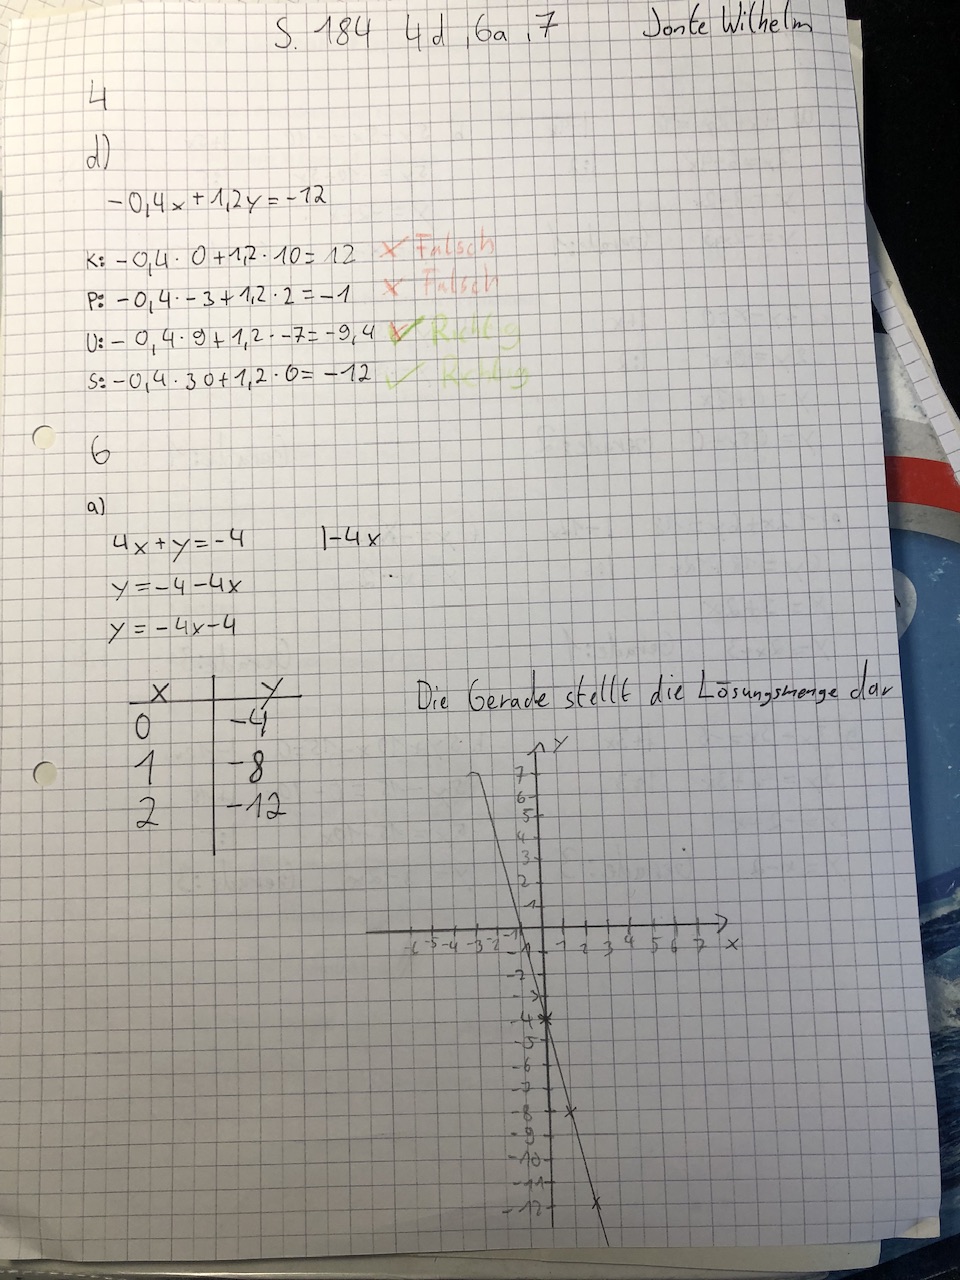 S. 184 4d, 6a, 7 Jonte Wilhelm
4
d)
-0,4x+1,2y=-12
K: -0,4·0+1,2·10=12 x Falsch
P: -0,4·-3+1,2·2=-1 x Falsch
U: -0,4·9+1,2·-7=-9,4 ✓ Richtig
S: -0,4·30+1,2·0=-12 ✓ Richtig
6
a)
4x+y=-4 |-4x
y=-4-4x
y=-4x-4
x y
0 -4
1 -8
2 -12
Die Gerade stellt die Lösungsmenge dar
y
7
6
5
4
3
2
1
-6 -5 -4 -3 -2 -1 1 2 3 4 5 6 7 x
-1
-2
-4
-5
-6
-7
-8
-9
-10
-11
-12